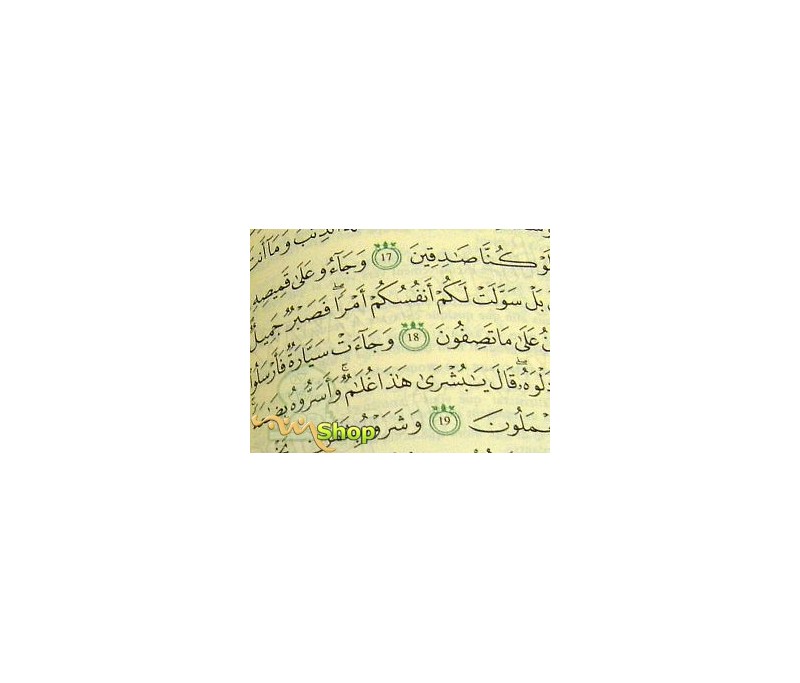 وَمَآ أَنتَ
كُنَّا صَٰدِقِينَ 17 وَجَآءُو عَلَىٰ قَمِيصِهِ
بَلْ سَوَّلَتْ لَكُمْ أَنفُسُكُمْ أَمْرًا ۖ فَصَبْرٌ جَمِيلٌ
عَلَىٰ مَا تَصِفُونَ 18 وَجَآءَتْ سَيَّارَةٌ فَأَرْسَلُوا
دَلْوَهُۥ ۖ قَالَ يَٰبُشْرَىٰ هَٰذَا غُلَٰمٌ ۚ وَأَسَرُّوهُ
19 وَشَرَوْهُ
Shop